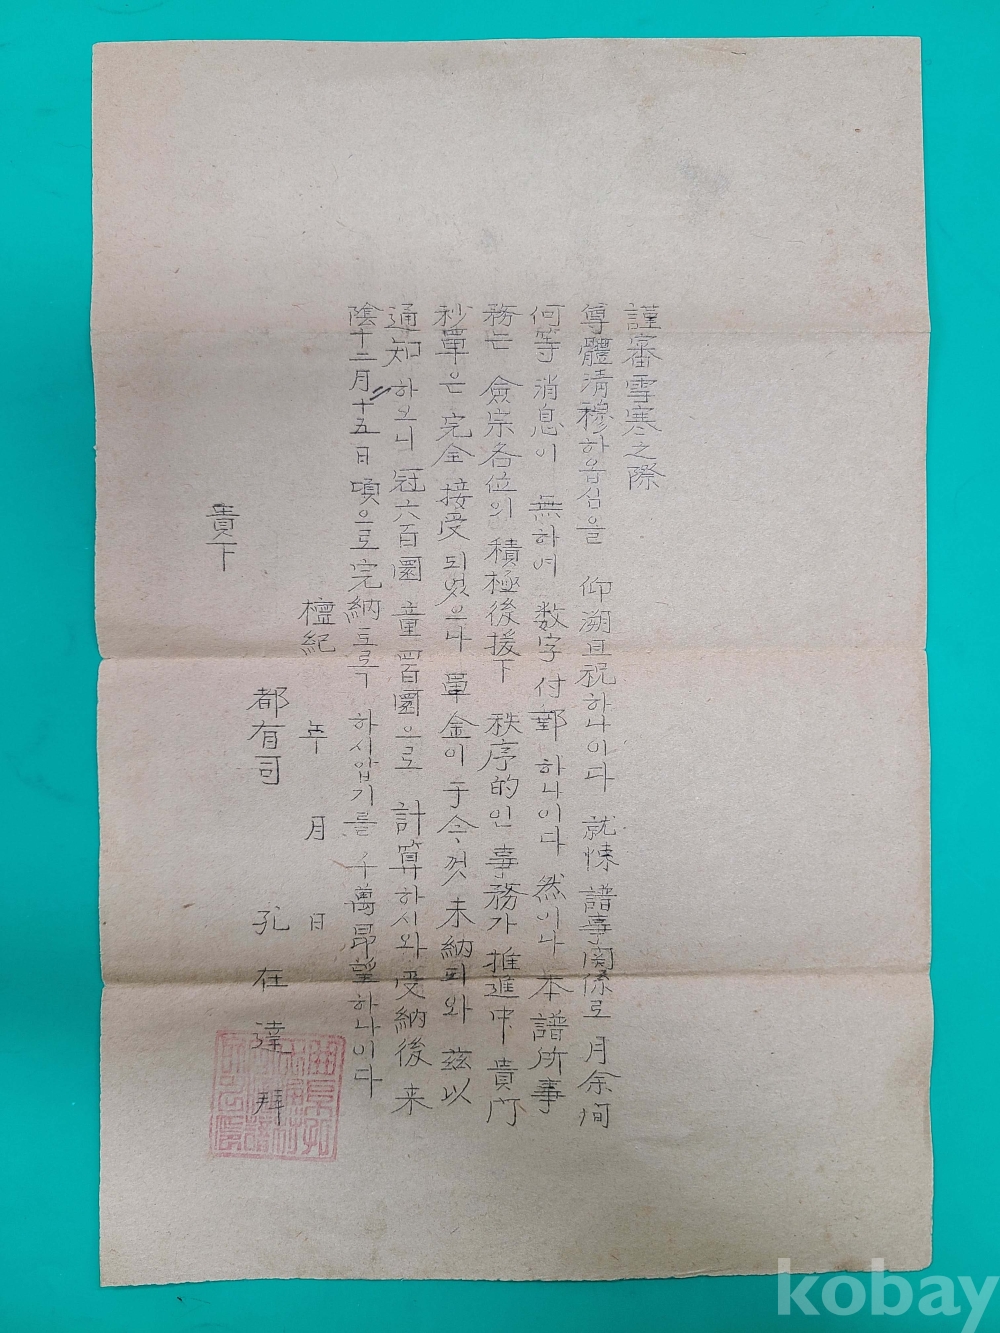 謹審雪寒之際
尊體淸穆하옵심을 仰溯且祝하나이다 就悚 譜事関係로 月余
何等 消息이 無하여 数字 付郵 하나이다 然이나 本譜所事
務는 僉宗各位의 積極後援下 秩序的인 事務가 推進中 貴門
秒單은 完全 接受 되었으나 單金이 于今것 未納되와 茲以
通知 하오니 冠六百圜 童四百圜으로 計算하시와 受納後 来
陰十二月十五日 頃으로 完納토록 하시압기를 千萬昻望하나이다
檀紀 年 月 日
都有司 孔在達 拜
貴下
kobay